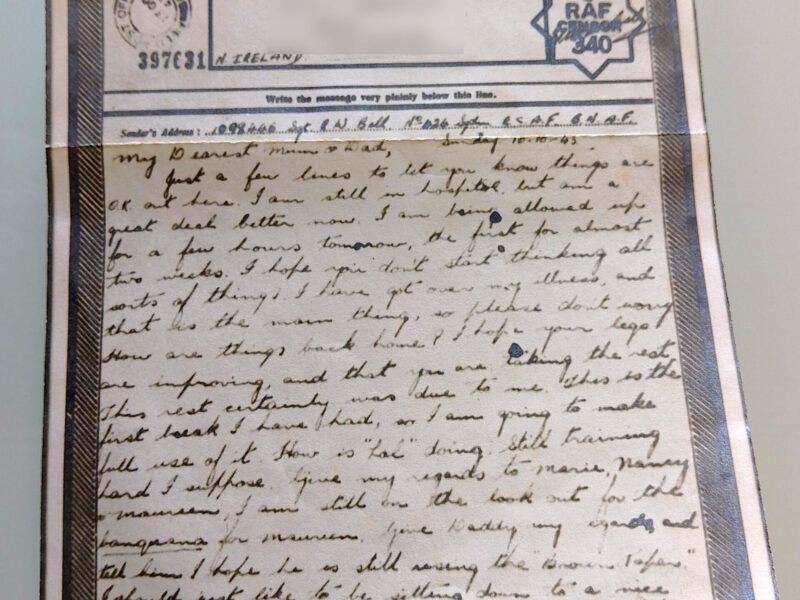 397631
N. IRELAND
RAF
CENSOR
340
Write the message very plainly below this line.
Sender's Address: 1098446 Sgt R W Bell No 624 Sqdn R.S.A.F. B.N.A.F.
Sunday 10-10-43
My Dearest Mum & Dad,
Just a few lines to let you know things are
OK out here. I am still in hospital, but am a
great deal better now. I am being allowed up
for a few hours tomorrow, the first for almost
two weeks. I hope you don't start thinking all
sorts of things. I have got over my illness, and
that is the main thing, so please don't worry
How are things back home? I hope your legs
are improving, and that you are taking the rest
This rest certainly was due to me. This is the
first break I have had, so I am going to make
full use of it. How is "Hal" doing. Still training
hard I suppose. Give my regards to Marie, Nancy
& Maureen, I am still on the look out for the
banquana for Maureen. Give Daddy my regards, and
tell him I hope he is still using the "Brown Paper."
I should just like to be sitting down to a nice